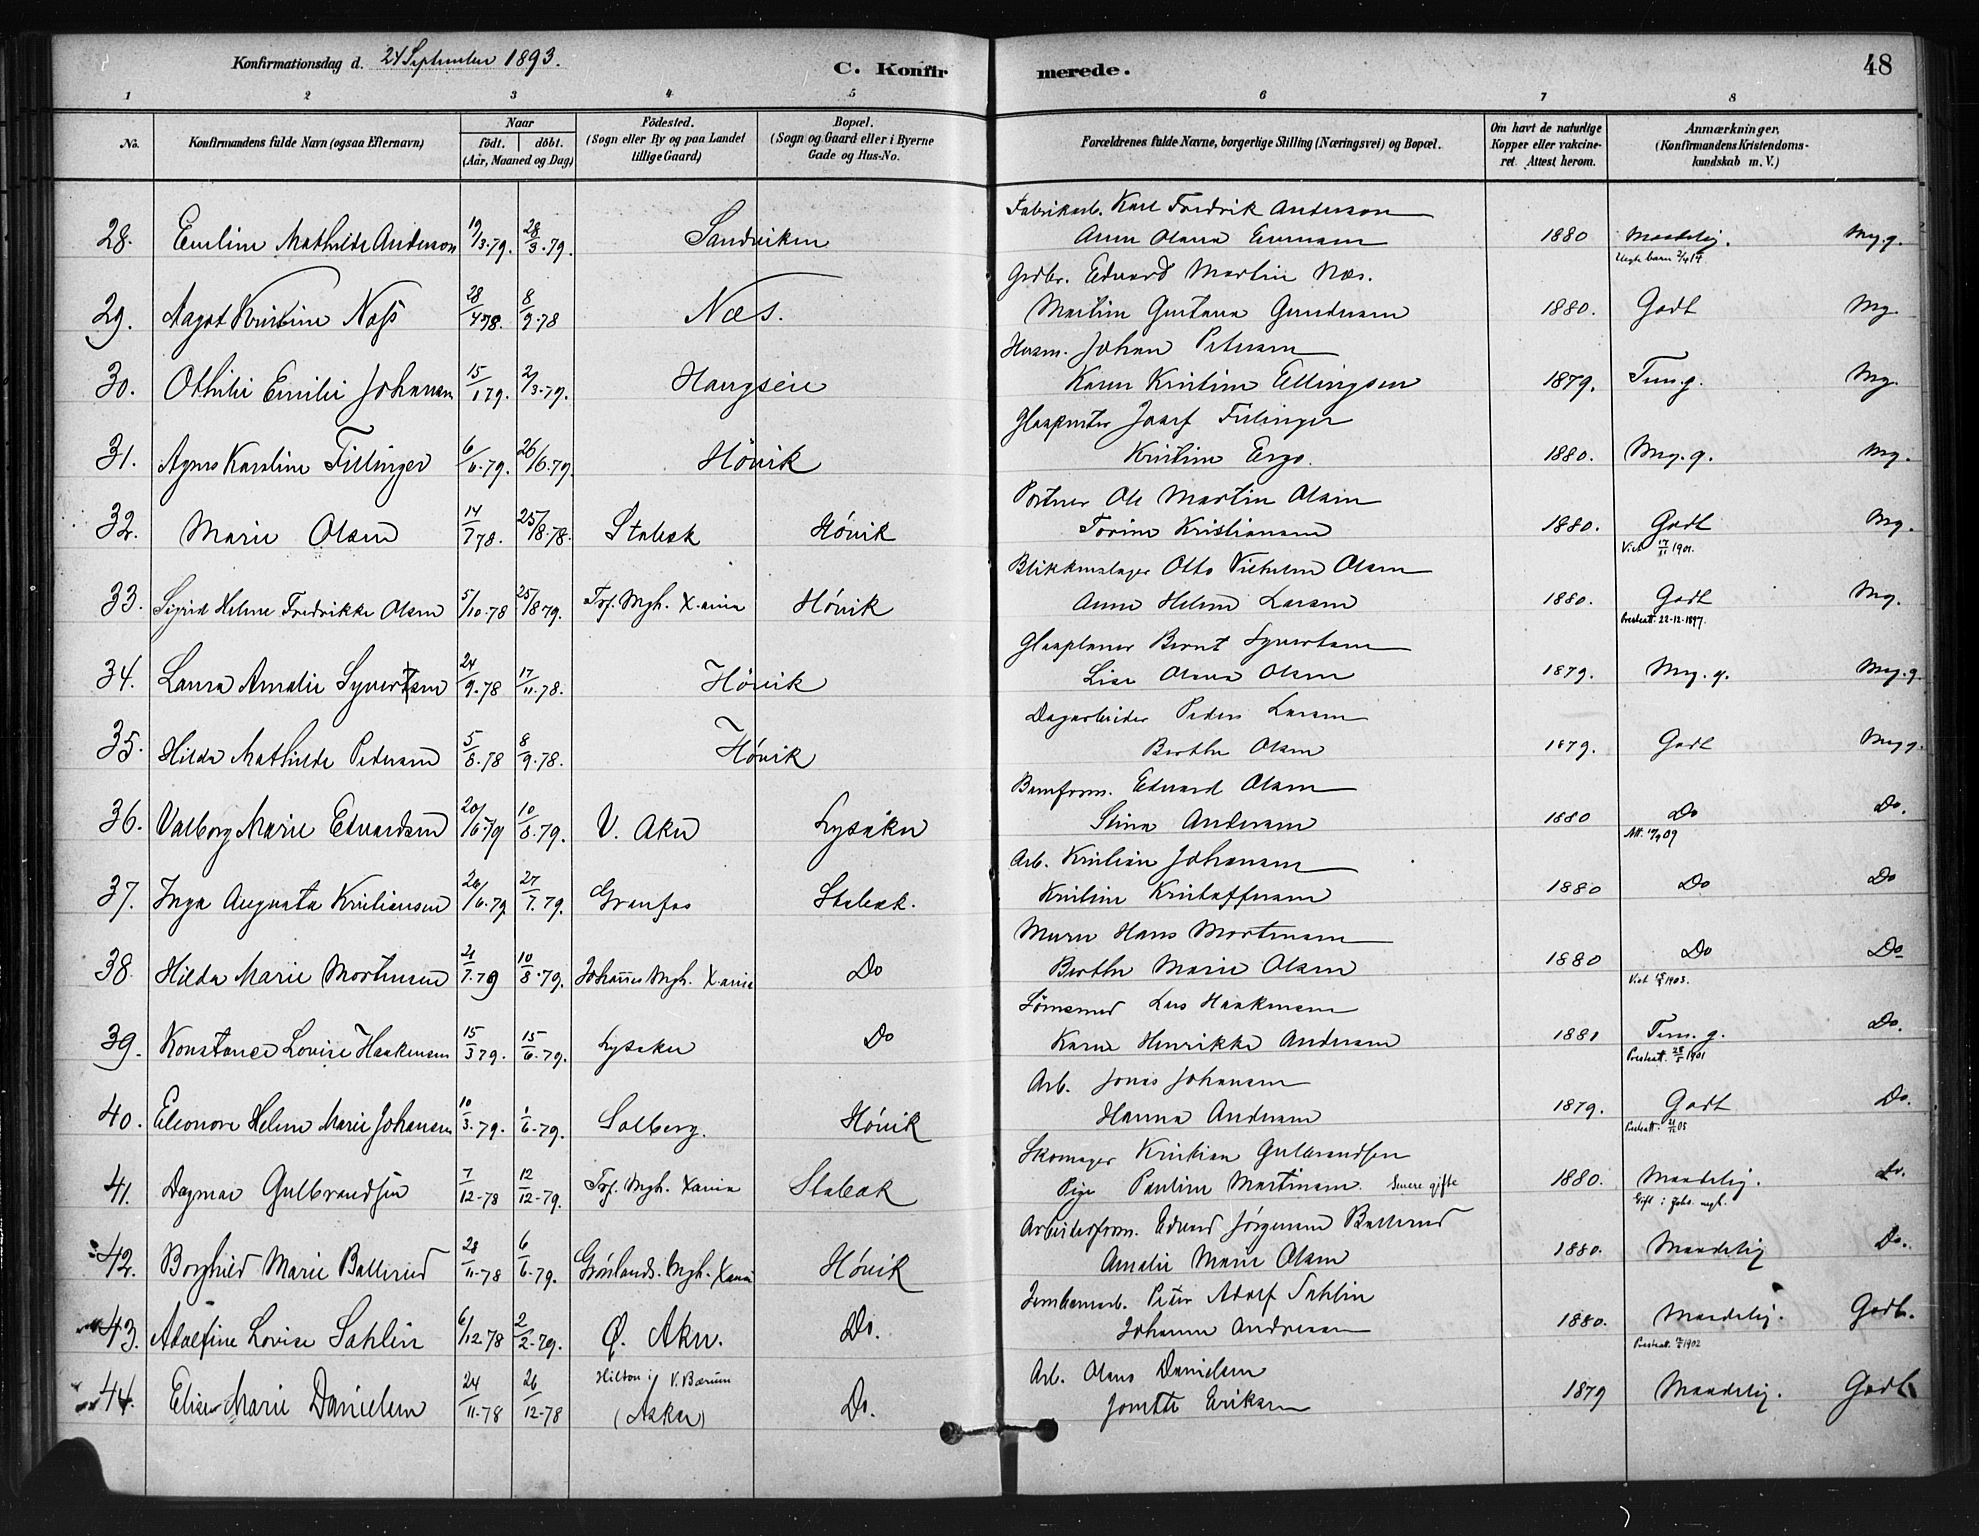 Konfirmationsdag d. 24 September 1893.
C. Konfirmerede.
48
1 2 3 4 5 6 7 8
No.
Konfirmandens fulde Navn (ogsaa Efternavn)
Naar
födt. döbt.
(Aar, Maaned og Dag)
Födested.
(Sogn eller By og paa Landet
tillige Gaard)
Bopæl.
(Sogn og Gaard eller i Byerne
Gade og Hus-No.
Forældrenes fulde Navne, borgerlige Stilling (Næringsvei) og Bopæl.
Om havt de naturlige
Kopper eller vakcine-
ret. Attest herom.
Anmærkninger,
(Konfirmandens Kristendoms-
kundskab m. V.)
Fabrikarb. Karl Fredrik Anderson
28. Emline Mathilde Anderson 19/3.79. 28/3.79. Sandviken Anna Olava 1880 Maadelig. Mg.g.
Grdbr. Edvard Martin Næs.
29. Aagot Kristine Næss 28/4 78. 8/9.78 Næs. Martine Gustava Gundersen 1880. Godt Mg.
Husm. Johan Petersen
30. Othilie Emilie Johansen 15/1 79. 2/3.79. Haugseie Karen Kristine Ellingsen 1879. Tem.g. Mg.
Glaspuster Josef Fillinger
31. Agnes Karoline Fillinger 6/6.79. 26/6.79. Hövik Kristine Ergo. 1880. Mg.g. Mg.
Portner Ole Martin Olsen
32. Marie Olsen 14/7 78. 25/8.78. Stabæk Hövik Torine Kristiansen 1880. Godt Mg.
Viet 17/11 1901.
Blikkenslager Otto Vilhelm Olsen
33. Sigrid Helene Fredrikke Olsen 5/10.78 25/8.79. Trf. Mgh. X.ania Hövik Anne Helene Larsen 1880. Godt Mg.
Prestatt. 22-12-1897.
Bernt Syvertsen
34. Laura Amalie Syvertsen 24/9.78 17/11.78. Hövik Lise Olava Olsen 1879. Mg.g. Mg.g.
Dagarbeider Peder Larsen
35. Hilda Mathilde Pedersen 5/8.78 8/9.78. Hövik Berthe Olsen 1879. Godt Mg.g.
Edvard Olsen
36. Valborg Marie Edvardsen 20/6.79 10/8.79. V. Aker Lysaker Stina Andersen 1880 Do Do.
Arb. Kristian Johansen
37. Inga Augusta Kristiansen 26/6.79 27/7.79. Granfos Stabæk. Kristine Kristoffersen 1880 Do Do
Murer Hans Mortensen
38. Hilda Marie Mortensen 21/7.79 10/8.79. Johannes Mgh. X.ania Do Berthe Marie Olsen 1880 Do Do
Lars Haakensen
39. Konstance Lovise Haakensen 15/3 79. 15/6.79. Lysaker Do Karen Henrikke Andersen 1881 Tem.g. Do.
Prestatt. 28/5 1901
Arb. Jonas Johansen
40. Eleonore Helene Marie Johansen 10/3.79. 1/6.79. Solberg. Hövik Hanna Andersen 1879. Godt Do.
Skomager Kristian Gulbrandsen
41. Dagmar Gulbrandsen 7/12.78 12/12.79. Trf. Mgh. Xania Stabæk Pige Pauline Martinsen. Senere gifte 1880. Maadelig. Do.
Gift i Johs. mgh.
Arbeidsform. Edvard Jörgensen Ballerud
42. Borghild Marie Ballerud 28/11.78 6/6.79. Grönlands. Mgh. Xania Hövik Amalie Marie Olsen 1880. Maadelig Do.
Jernbanearb. Peter Adolf Sahlin
43. Adolfine Lovise Sahlin 6/12 78 2/2.79. Ø. Aker. Do. Johanne Andresen 1880. Maadelig. Godt.
Arb. Olaus Danielsen
44. Elise Marie Danielsen 24/11.78 26/12.78 Hilton i V. Bærum (Asker) Do. Jonette Eriksen 1879 Maadelig. Godt